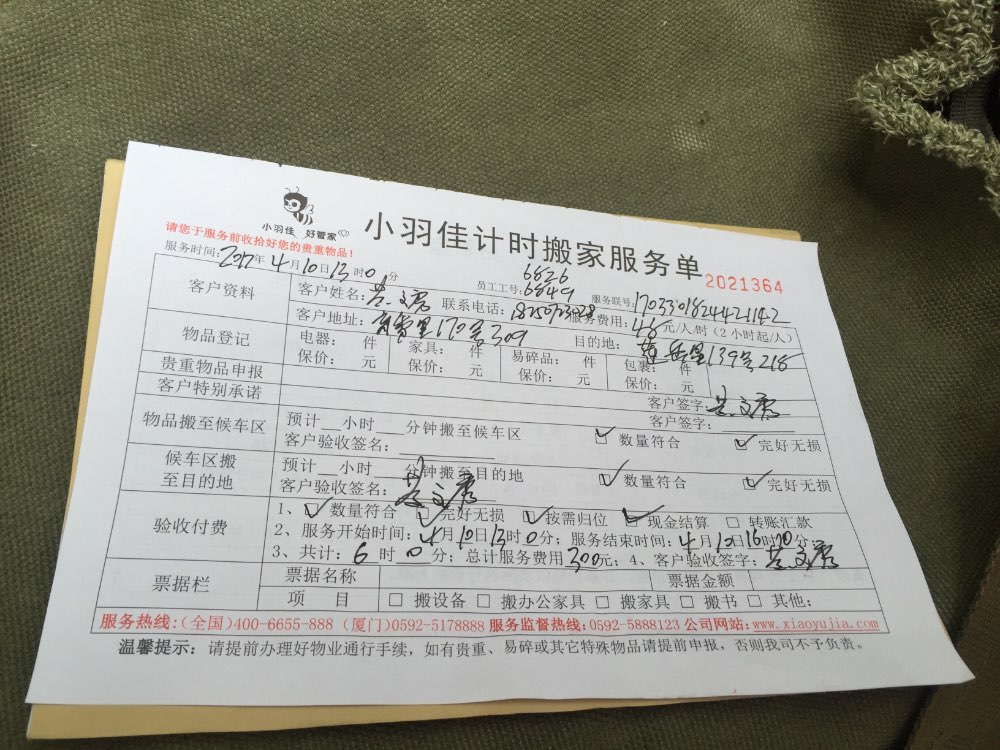 小羽佳 好管家
小羽佳计时搬家服务单
2021364
请您于服务前收拾好您的贵重物品！
服务时间：2017年4月10日13时0分
员工工号：6826
6849
服务联号：
客户资料
客户姓名：
联系电话：
服务费用：46元/人/时（2小时起/人）
客户地址：170号309
目的地：139号218
物品登记
电器： 件 家具： 件 易碎品： 件 包裹： 件
保价： 元 保价： 元 保价： 元 保价： 元
贵重物品申报
客户签字：
客户特别承诺
客户签字：
物品搬至候车区
预计__小时___分钟搬至候车区
客户验收签名：
数量符合 完好无损
候车区搬至目的地
预计__小时___分钟搬至目的地
客户验收签名：
数量符合 完好无损
验收付费
1、数量符合 完好无损 按需归位 现金结算 □ 转账汇款
2、服务开始时间：4月10日13时0分；服务结束时间：4月10日16时分；
3、共计：6时0分；总计服务费用300元；4、客户验收签字：
票据栏
票据名称 票据金额
项 目 □ 搬设备 □ 搬办公家具 □ 搬家具 □ 搬书 □ 其他：
服务热线：(全国)400-6655-888 (厦门)0592-5178888 服务监督热线：0592-5888123 公司网站：www.xiaoyujia.com
温馨提示：请提前办理好物业通行手续，如有贵重、易碎或其它特殊物品请提前申报，否则我司不予负责。